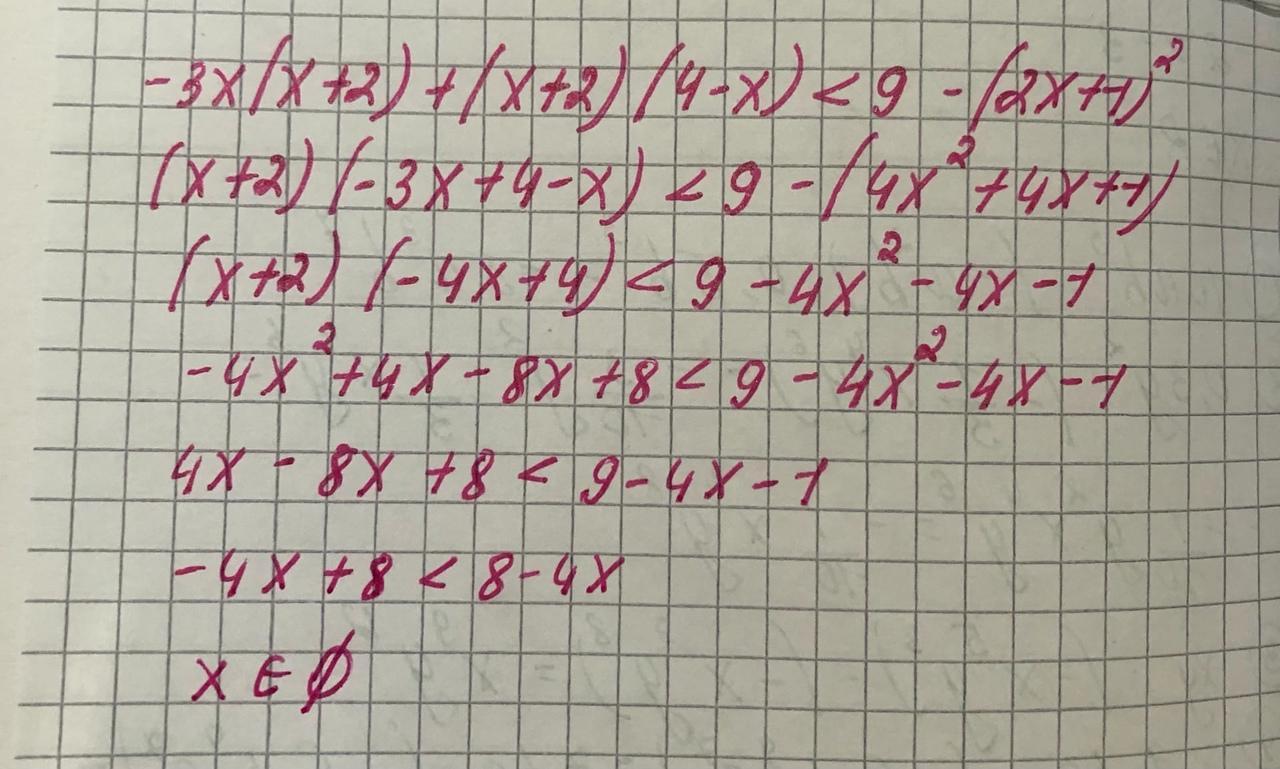 -3x(x+2)+(x+2)(4-x)<9-(2x+1)²
(x+2)(-3x+4-x)<9-(4x²+4x+1)
(x+2)(-4x+4)<9-4x²-4x-1
-4x²+4x-8x+8<9-4x²-4x-1
4x-8x+8<9-4x-1
-4x+8<8-4x
x∈∅